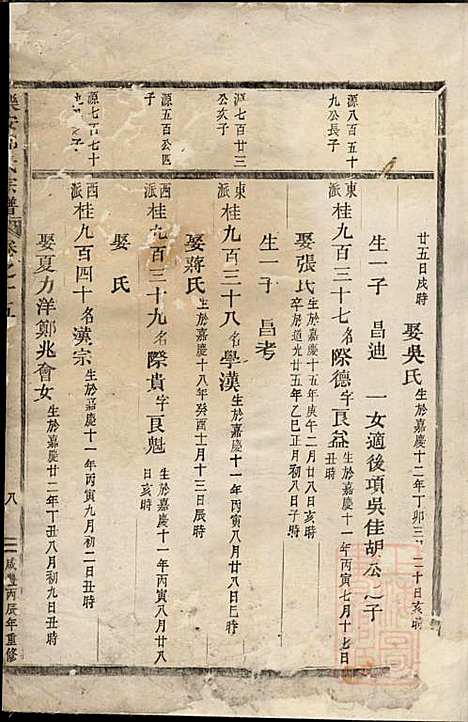 廿五日戌時
娶吳氏 生於嘉慶十二年丁卯三 二十日亥時
生一子 昌迪 一女適後項吳佳胡公 子
源八百五十九公長子
東派 桂九百三十七 名際德字艮益 生於嘉慶十一年丙寅七月十七日丑時
娶張氏 生於嘉慶十五年庚午二月廿八日亥時 卒於道光廿五年乙巳正月初八日子時
生一子 昌考
源七百廿三公次子
東派 桂九百三十八 名學漢 生於嘉慶十一年丙寅八月廿八日巳時
娶蔣氏 生於嘉慶十八年癸酉十一月十三日辰時
源五百公四子
西派 桂九百三十九 名際貴字艮魁 生於嘉慶十一年丙寅八月廿八日亥時
娶 氏
源七百七十 子
西派 桂九百四十 名漢宗 生於嘉慶十一年丙寅九月初二日丑時
娶夏力洋鄭兆會女 生於嘉慶廿二年丁丑八月初九日丑時
氏宗譜 卷之 五 八 咸豐丙辰年重修